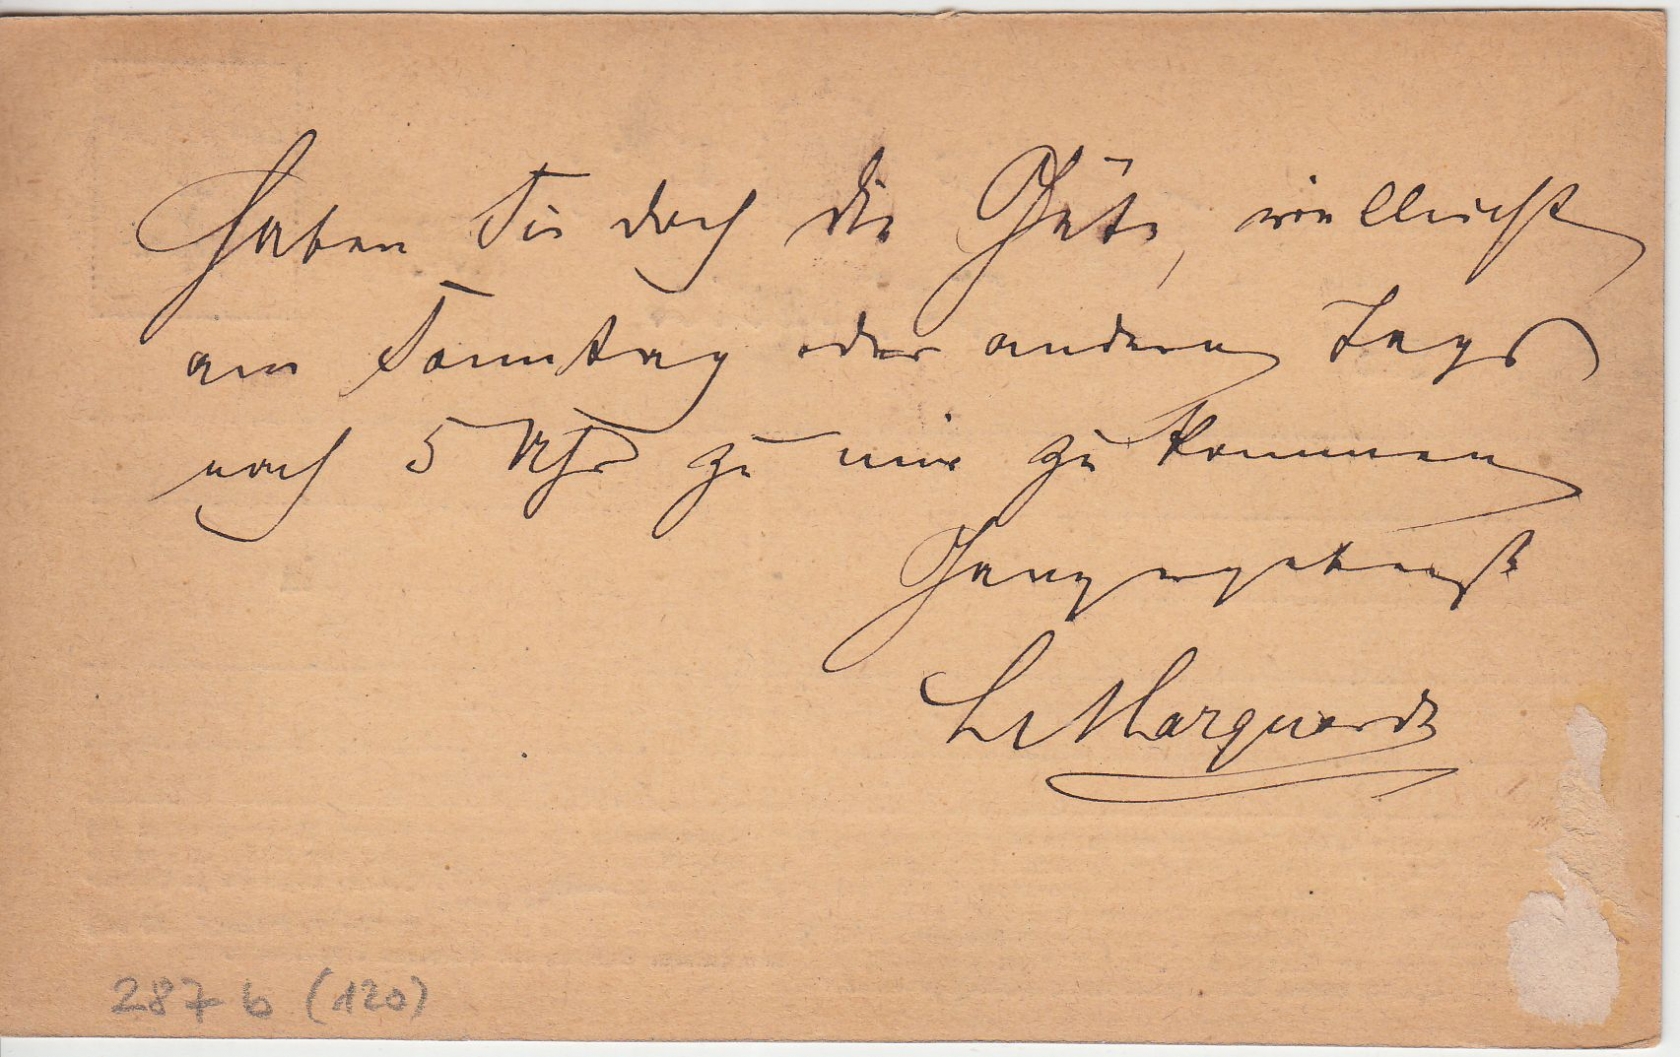 Haben Sie doch die Güte, vielleicht
am Sonntag oder anderen Tags
nach 5 Uhr zu mir zu kommen
Ganz ergebenst
Marquardt
287 b (120)